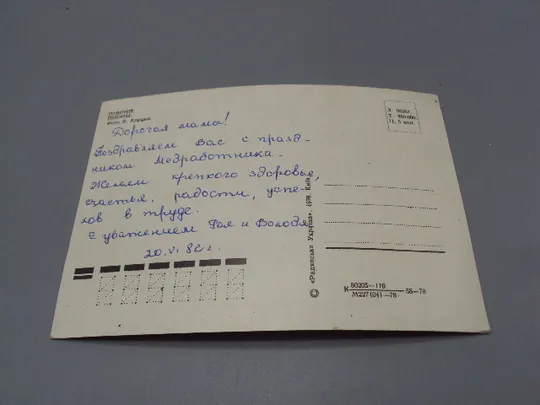 Фото В. Крушка
Дорогая мама!
Поздравляем Вас с празд-
ником Медработника.
Желаем крепкого здоровья,
счастья, радости, успе-
хов в труде.
С уважением Рая и Володя
20.VI.82 г.
Ц. 5 коп.
«Радянська Україна», 1978, Київ
©
К 60205—118 58—78
М227(04)—78